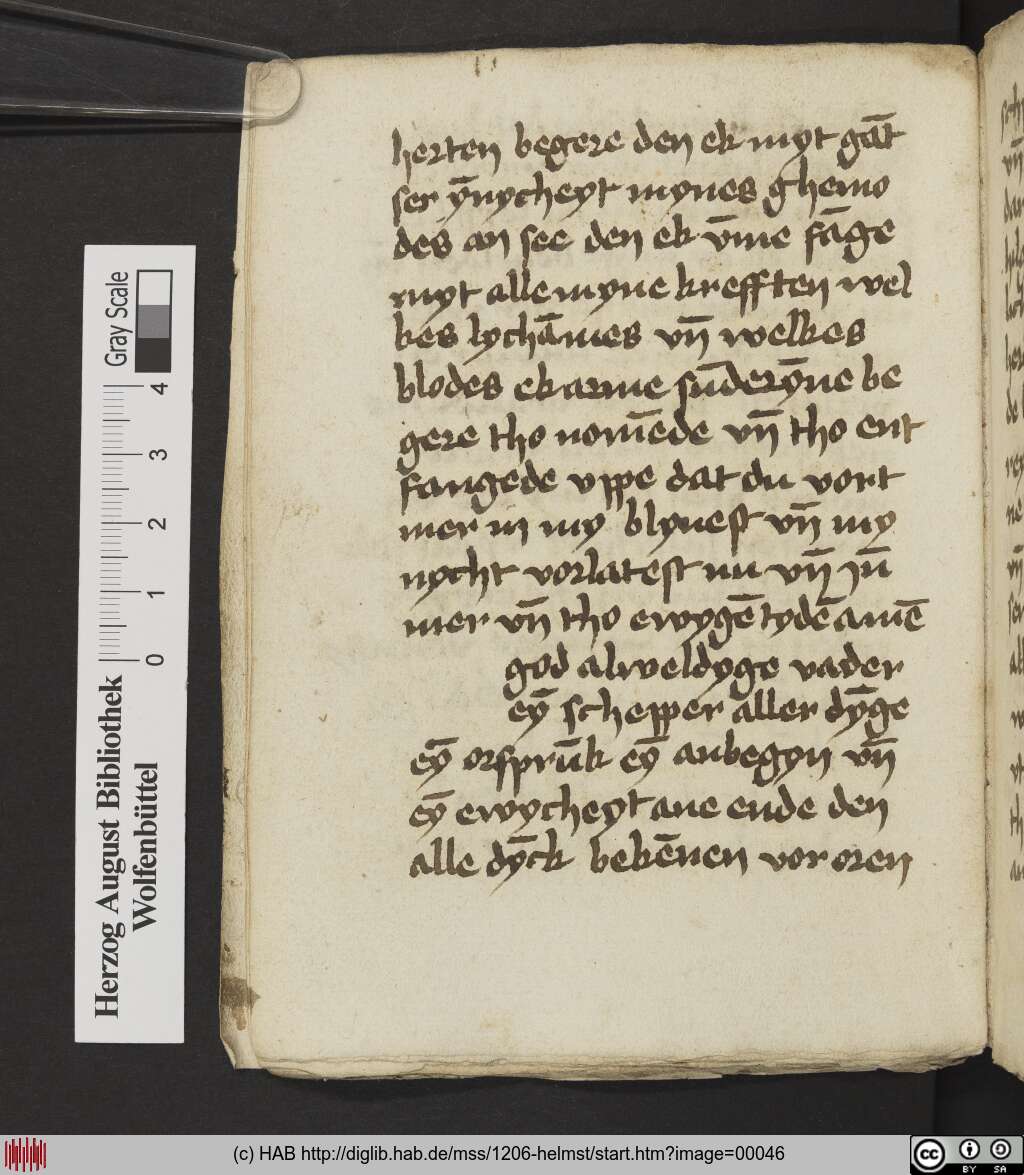 herten begere den ek myt gāt
ser ȳnycheyt mynes ghemo
des an see den ek v̄me fāge
myt alle myne krefften wel
kes lychāmes vn̄ welkes
blodes ek arme sūderȳne be
gere tho nom̄ede vn̄ tho ent
fangede vppe dat du vort
mer in my blyuest vn̄ my
nycht vorlatest nu vn̄ ju̅
mer vn̄ tho ewygē tydē amē
god alweldyge vader
eȳ schepper aller dȳge
eȳ orsprūk eȳ anbegyn vn̄
eȳ ewycheyt ane ende den
alle dȳck bekēnen vor oren
Gray Scale
4
3
2
1
0
Herzog August Bibliothek
Wolfenbüttel
(c) HAB http://diglib.hab.de/mss/1206-helmst/start.htm?image=00046
cc BY SA